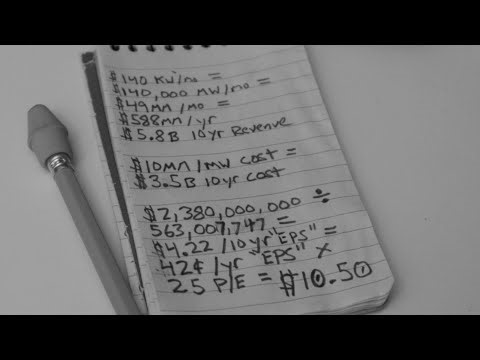 $140 KW/mo =
$140,000 MW/mo =
$49MM/mo =
$588MM/yr
$5.8B 10yr Revenue
$10MM/MW cost =
$3.5B 10yr cost
$2,380,000,000 ÷
563,007,747 =
$4.22/10yr "EPS" =
42¢/yr "EPS" ×
25 P/E = $10.50